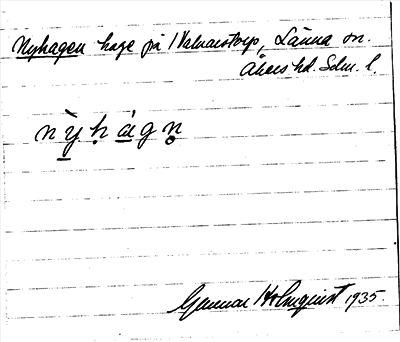 Nyhagen hage på 1 Valnarstorp, Länna sn.
Åkers hd. Sdm. l.
nỳhágn
Gunnar Holmquist 1935.